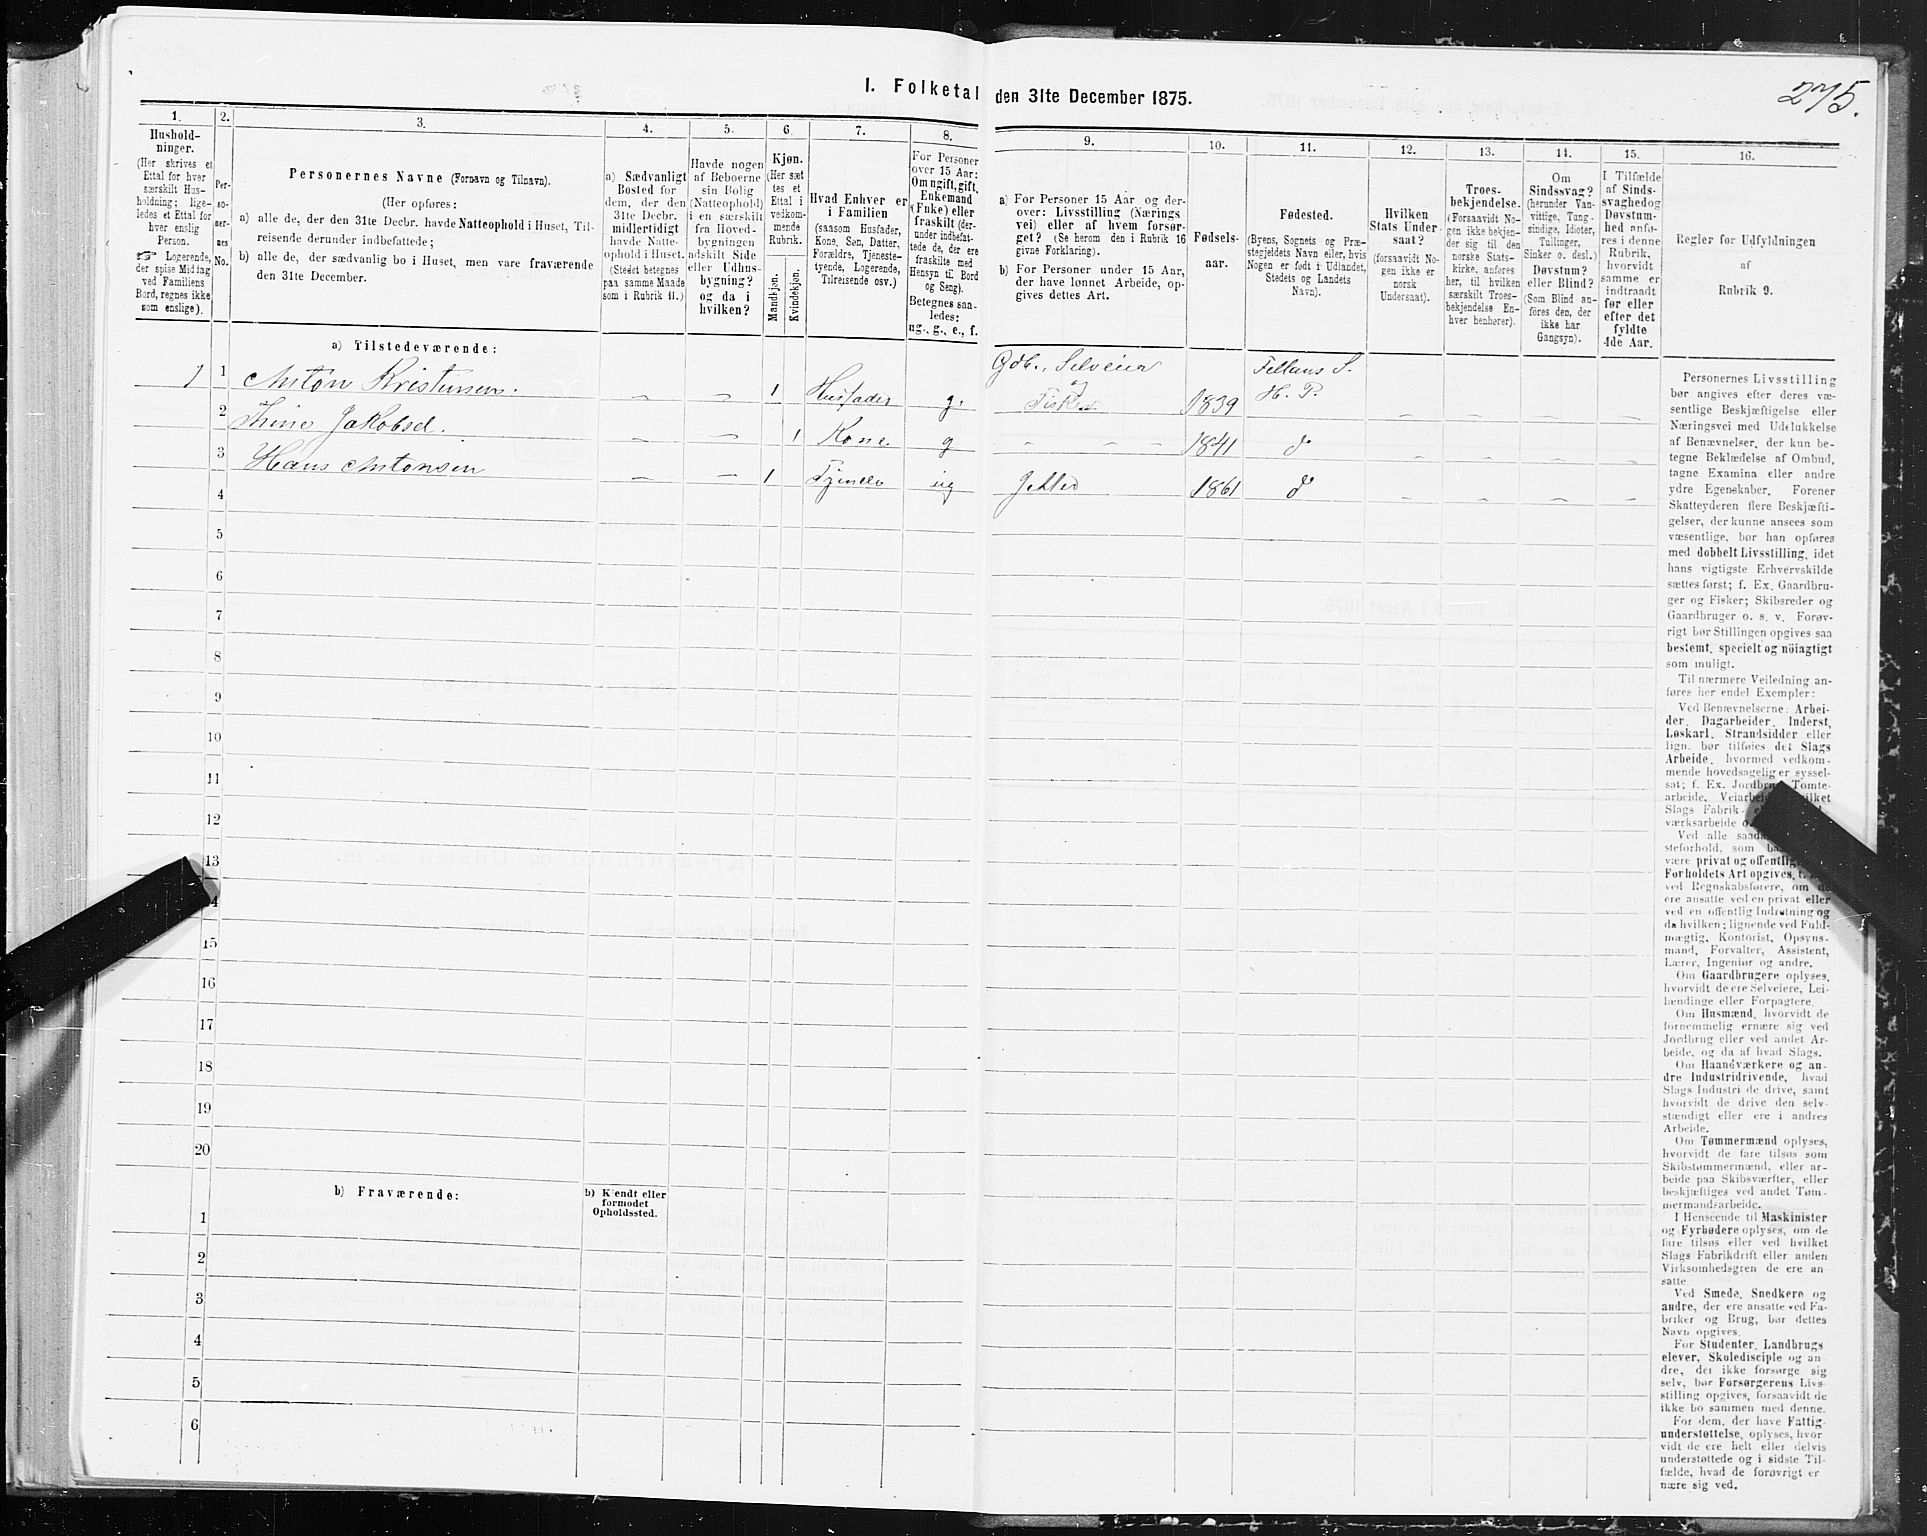 275.
I. Folketal den 31te December 1875.
1.
Hushold-
ninger.
(Her skrives et
Ettal for hver
særskilt Hus-
holdning; lige-
ledes et Ettal for
hver enslig
Person.
☞ Logerende,
der spise Middag
ved Familiens
Bord, regnes ikke
som enslige).
2.
Per-
so-
ner-
nes
No.
3.
Personernes Navne (Fornavn og Tilnavn).
(Her opføres:
a) alle de, der den 31te Decbr. havde Natteophold i Huset, Til-
reisende derunder indbefattede;
b) alle de, der sædvanlig bo i Huset, men vare fraværende
den 31te December.
4.
a) Sædvanligt
Bosted for
dem, der den
31te Decbr.
midlertidigt
havde Natte-
ophold i Huset.
(Stedet betegnes
paa samme Maade
som i Rubrik 11.)
5.
Havde nogen
af Beboerne
sin Bolig
(Natteophold)
i en særskilt
fra Hoved-
bygningen
adskilt Side
eller Udhus-
bygning?
og da i
hvilken?
6.
Kjøn.
(Her sæt
tes et
Ettal i
vedkom-
mende
Rubrik.
Mandkjøn.
Kvindekjøn.
7.
Hvad Enhver er
i Familien
(saasom Husfader,
Kone, Søn, Datter,
Forældre, Tjeneste-
tyende, Logerende,
Tilreisende osv.)
8.
For Personer
over 15 Aar:
Om ugift, gift,
Enkemand
(Enke) eller
fraskilt (der-
under indbefat-
tede de, der ere
fraskilte med
Hensyn til Bord
og Seng).
Betegnes saa-
ledes:
ug., g., e., f.
9.
a) For Personer 15 Aar og der-
over: Livsstilling (Nærings
vei) eller af hvem forsør-
get? (Se herom den i Rubrik 16
givne Forklaring).
b) For Personer under 15 Aar,
der have lønnet Arbeide, op-
gives dettes Art.
10.
Fødsels-
aar.
11.
Fødested.
(Byens, Sognets og Præ-
stegjeldets Navn eller, hvis
Nogen er født i Udlandet,
Stedets og Landets
Navn).
12.
Hvilken
Stats Under
saat?
(forsaavidt No-
gen ikke er
norsk
Undersaat).
13.
Troes-
bekjendelse.
(Forsaavidt No-
gen ikke bekjen-
der sig til den
norske Stats-
kirke, anføres
her, til hvilken
særskilt Troes-
bekjendelse En-
hver henhører).
14.
Om
Sindssvag?
(herunder Van-
vittige, Tung-
sindige, Idioter,
Tullinger,
Sinker o. desl.)
Døvstum?
eller Blind?
(Som Blind an-
føres den, der
ikke har
Gangsyn).
15.
I Tilfælde
af Sinds-
svaghedog
Døvstum-
hed anfø-
res i denne
Rubrik,
hvorvidt
samme er
indtraadt
før eller
efter det
fyldte
4de Aar.
16.
Regler for Udfyldningen
af
Rubrik 9.
a) Tilstedeværende:
1 1 Anton Kristensen. – – 1 Husfader g. Gdb., Selveier og Fisker 1839 H. P. – – – –
2 Jakobsd. – – 1 Kone g – – 1841 do – – – –
3 Hans Antonsen – – 1 ug 1861 do – – – –
4
5
6
7
8
9
10
11
12
13
14
15
16
17
18
19
20
b) Fraværende:
b) Kjendt eller
formodet
Opholdssted.
1
2
3
4
5
6
Personernes Livsstilling
bør angives efter deres væ-
sentlige Beskjæftigelse eller
Næringsvei med Udelukkelse
af Benævnelser, der kun be-
tegne Beklædelse af Ombud,
tagne Examina eller andre
ydre Egenskaber. Forener
Skatteyderen flere Beskjæfti-
gelser, der kunne ansees som
væsentlige, bør han opføres
med dobbelt Livsstilling, idet
hans vigtigste Erhvervskilde
sættes først; f. Ex. Gaardbru-
ger og Fisker; Skibsreder og
Gaardbruger o. s. v. Forøv-
rigt bør Stillingen opgives saa
bestemt, specielt og nöiagtigt
som muligt.
Til nærmere Veiledning an-
føres her endel Exempler:
Ved Benævnelserne: Arbei-
der, Dagarbeider, Inderst,
Løskarl, Strandsidder eller
lign. bør tilføies det Slags
Arbeide, hvormed vedkom-
mende hovedsagelig er syssel-
sat; f. Ex. Tomte-
arbeide,
Slags Fabrik-
værksarbeide
Ved alle
steforhold, som
være privat og
Forholdets Art opgives,
ved Regnskabsførere, om de
ere ansatte ved en privat eller
ved en offentlig Indretning og
da hvilken; lignende ved Fuld-
mægtig, Kontorist, Opsyns-
mand, Forvalter, Assistent,
Lærer, Ingeniør og andre.
Om Gaardbrugere oplyses,
hvorvidt de ere Selveiere, Lei-
lændinge eller Forpagtere.
Om Husmænd, hvorvidt de
fornemmelig ernære sig ved
Jordbrug eller ved andet Ar-
beide, og da af hvad Slags.
Om Haandværkere og an-
dre Industridrivende, hvad
Slags Industri de drive, samt
hvorvidt de drive den selv-
stændigt eller ere i andres
Arbeide.
Om Tømmermænd oplyses,
hvorvidt de fare tilsøs som
Skibstømmermænd, eller ar-
beide paa Skibsværfter, eller
beskjæftiges ved andet Tøm-
mermandsarbeide.
I Henseende til Maskinister
og Fyrbødere oplyses, om de
fare tilsøs eller ved hvilket
Slags Fabrikdrift eller anden
Virksomhedsgren de ere an-
satte
Ved Smede, Snedkere og
andre, der ere ansatte ved Fa-
briker og Brug, bør dettes
Navn opgives.
For Studenter, Landbrugs
elever, Skoledisciple og an-
dre, der ikke forsørge sig
selv, bør Forsørgerens Livs-
stilling opgives, forsaavidt de
ikke bo sammen med denne.
For dem, der have Fattig-
understøttelse, oplyses, hvor-
vidt de ere helt eller delvis
understøttede og i sidste Til-
fælde, hvad de forøvrigt er
nære sig ved.